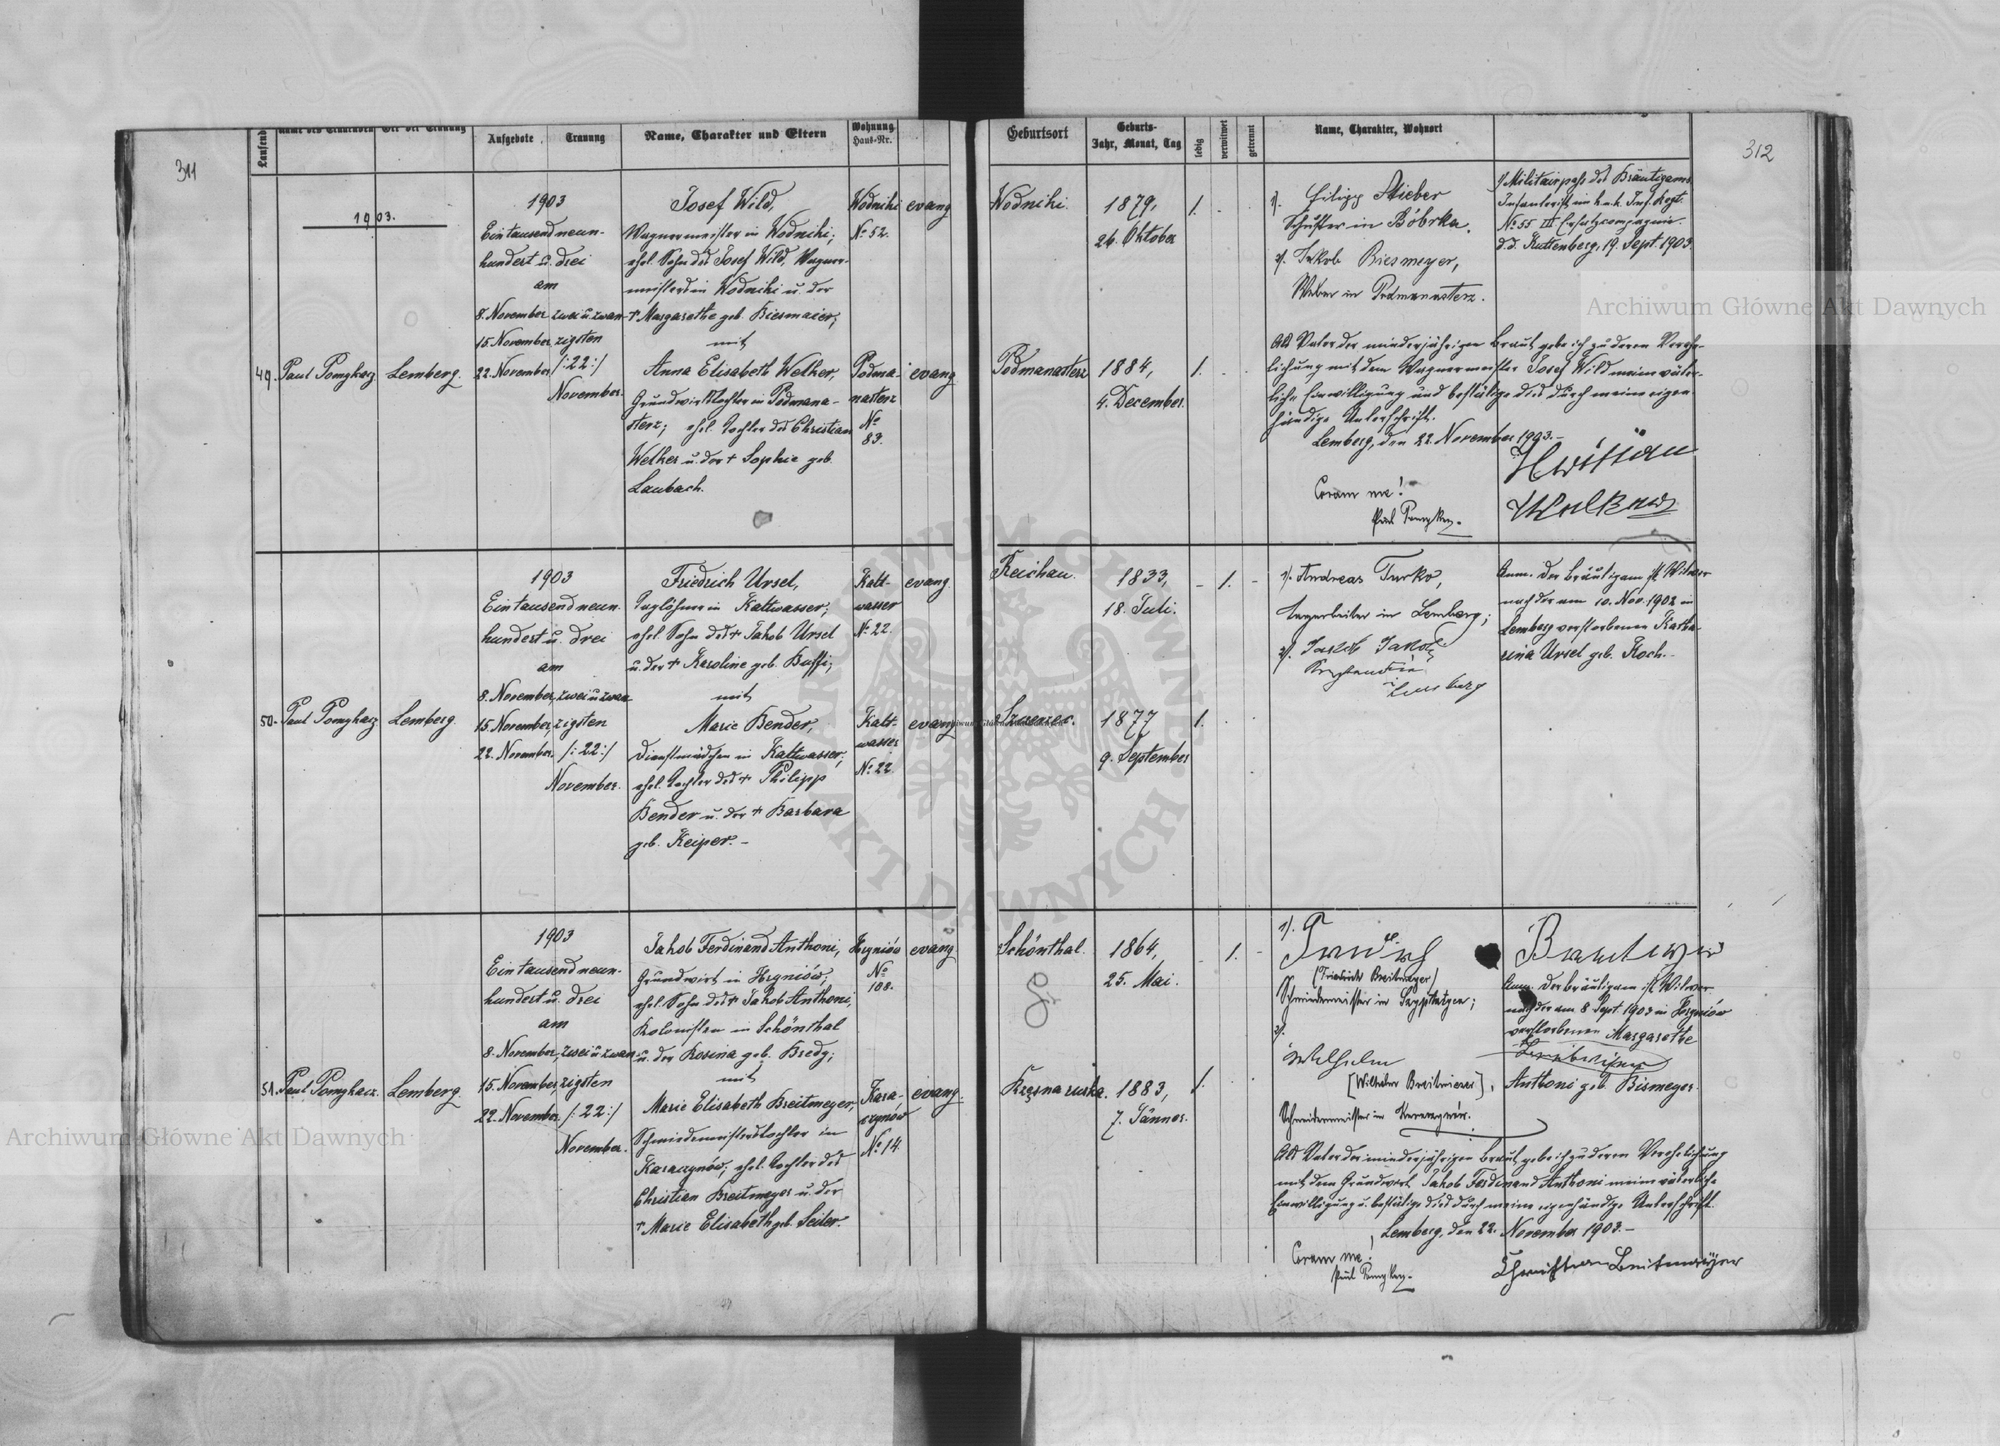 311
312
Laufende
Name des Trauenden
Ort der Trauung
Aufgebote
Trauung
Name, Charakter und Eltern
Wohnung
Haus-Nr.
Geburtsort
Geburts-
Jahr, Monat, Tag
ledig
verwitwet
getrennt
Name, Charakter, Wohnort
1903.
49.
Paul Pomykacz
Lemberg.
1903
Eintausendneun-
hundert u. drei
am
8. November, zwei u. zwan-
15. November, zigsten
22. November /:22:/
November.
Josef Wild,
Wagnermeister in Wodniki;
ehel. Sohn des Josef Wild, Wagner-
meisters in Wodniki u. der
† Margarethe geb. Biesmaier;
mit
Anna Elisabeth Welker,
Grundwirtstochter in Podmana-
sterz; ehel. Tochter des Christian
Welker u. der † Sophie geb.
Laubach.
Wodniki
No 52.
Podma-
nasterz
No
83.
evang.
evang.
Wodniki.
Podmanasterz
1879,
26. Oktober
1884,
4. December.
1.
1.
1). Filipp Stieber
Schuster in Bóbrka.
2). Jakob Biesmeyer,
Weber in Podmanasterz.
1) Militairpass des Bräutigams
Infanterist im k.u.k. Inf. Regt.
No 55 III Ersatzcompagnie
d.d. Kuttenberg, 19. Sept. 1903
Als Vater der minderjährigen Braut gebe ich zu deren Vereh-
lichung mit dem Wagnermeister Josef Wild meine väter-
liche Einwilligung und bestätige dies durch meine eigen-
händige Unterschrift.
Lemberg, den 22. November 1903.-
Coram me!
Paul Pomykacz.
50.
Paul Pomykacz
Lemberg.
1903
Eintausendneun-
hundert u. drei
am
8. November, zwei u. zwan
15. November, zigsten
22. November. /:22:/
November.
Friedrich Ursel,
Taglöhner in Kaltwasser;
ehel. Sohn des † Jakob Ursel
u. der † Karoline geb. Buffi;
mit
Marie Bender,
Dienstmädchen in Kaltwasser;
ehel. Tochter des † Philipp
Bender u. der † Barbara
geb. Keiper.-
Kalt-
wasser
No 22.
Kalt-
wasser
No 22.
evang.
evang.
Reichau.
Szczerzec.
1833,
18. Juli.
1877
9. September
1.
1.
1). Andreas Turko,
Lagerleiter in Lemberg;
Anm. Der Bräutigam ist Witwer
nach der am 10. Nov. 1902 in
Lemberg verstorbenen Katha-
rina Ursel geb. Koch.-
51.
Paul Pomykacz.
Lemberg.
1903
Eintausendneun-
hundert u. drei
am
8. November, zwei u. zwan-
15. November, zigsten
22. November /:22:/
November.
Jakob Ferdinand Anthoni,
Grundwirt in Hryniów,
ehel. Sohn des † Jakob Anthoni,
Kolonisten in Schönthal
u. der Rosina geb. Bredy;
mit
Marie Elisabeth Breitmeyer,
Schmiedemeisterstochter in
Karaczynów; ehel. Tochter des
Christian Breitmeyer u. der
† Marie Elisabeth geb. Seiler.
Hryniów
No
108.
Kara-
czynów
No 14
evang.
evang.
Schönthal.
Krasna ruska.
1864,
25. Mai.
1883,
7. Jänner.
1.
1.
1).
(Friedrich Breitmeyer)
2).
Wilhelm
[Wilhelm Breitmeier],
Anm. Der Bräutigam ist Witwer
nach der am 8 Sept. 1903 in Hryniów
verstorbenen Margarethe
Anthoni geb. Bismeyer.
Als Vater der minderjährigen Braut gebe ich zu deren Verehelichung
mit dem Grundwirt Jakob Ferdinand Anthoni meine väterliche
Einwilligung u. bestätige dies durch meine eigenhändige Unterschrift.
Lemberg, den 22. November 1903.-
Coram me!
Paul Pomykacz.
Archiwum Główne Akt Dawnych
Archiwum Główne Akt Dawnych
ARCHIWUM GŁÓWNE AKT DAWNYCH